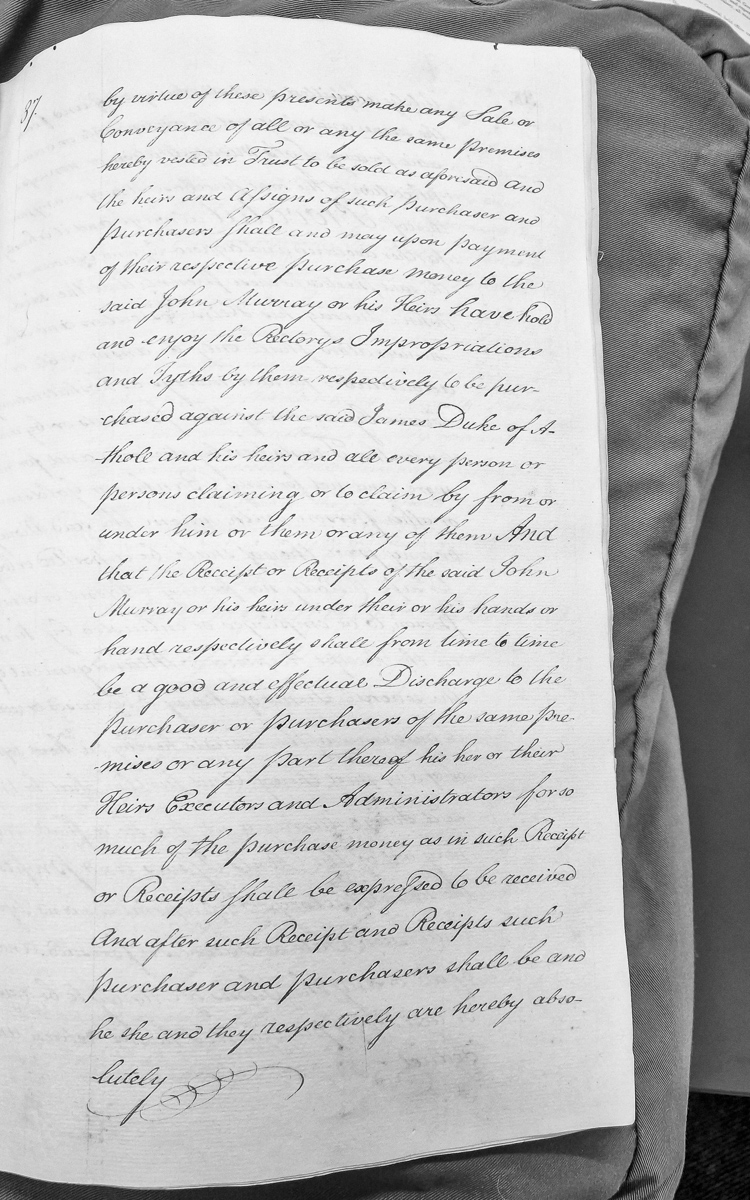 37.
by virtue of these presents make any Sale or
Conveyance of all or any the same premises
hereby vested in Trust to be sold as aforesaid and
the heirs and Assigns of such purchaser and
purchasers shall and may upon payment
of their respective purchase money to the
said John Murray or his Heirs have hold
and enjoy the Rectorys Impropriations
and Tyths by them respectively to be pur-
chased against the said James Duke of A-
-thole and his heirs and all every person or
persons claiming or to claim by from or
under him or them or any of them And
that the Receipt or Receipts of the said John
Murray or his heirs under their or his hands or
hand respectively shall from time to time
be a good and effectual Discharge to the
purchaser or purchasers of the same pre-
-mises or any part thereof his her or their
Heirs Executors and Administrators for so
much of the purchase money as in such Receipt
or Receipts shall be expressed to be received
And after such Receipt and Receipts such
purchaser and purchasers shall be and
he she and they respectively are hereby abso-
lutely